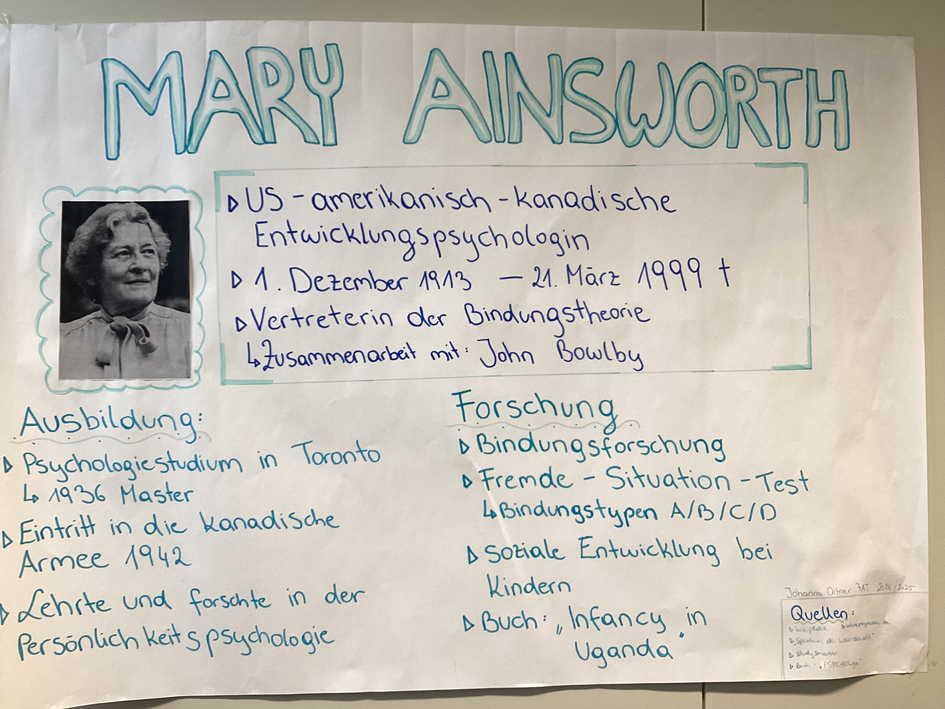 MARY AINSWORTH
▷ US-amerikanisch-kanadische
Entwicklungspsychologin
▷ 1. Dezember 1913 — 21. März 1999 †
▷ Vertreterin der Bindungstheorie
↳ Zusammenarbeit mit: John Bowlby
Ausbildung:
▷ Psychologiestudium in Toronto
↳ 1936 Master
▷ Eintritt in die kanadische
Armee 1942
▷ Lehrte und forschte in der
Persönlichkeitspsychologie
Forschung
▷ Bindungsforschung
▷ Fremde-Situation-Test
↳ Bindungstypen A/B/C/D
▷ Soziale Entwicklung bei
Kindern
▷ Buch: „Infancy in
Uganda"
Johanna Ortner
Quellen:
▷ Wikipedia
▷ Buch: „PSYCHOlogie"